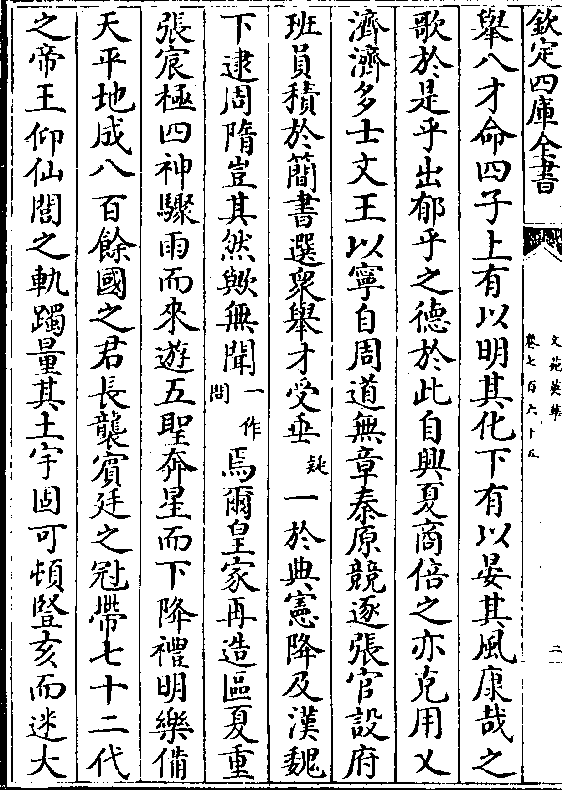 欽定四庫全書
文苑英華
卷七百六十五
二
舉八才命四子上有以明其化下有以晏其風康哉之
歌於是乎出郁乎之德於此自興夏商倍之亦克用乂
濟濟多士文王以寧自周道無章秦原競逐張官設府
班員積於簡書選衆舉才受垂闕一於典憲降及漢魏
下逮周隋豈其然歟無聞一作問焉爾皇家再造區夏重
張宸極四神驟雨而來遊五聖奔星而下降禮明樂備
天平地成八百餘國之君長襲賓廷之冠帶七十二代
之帝王仰仙閭之軌躅量其土宇固可頓豎亥而迷大